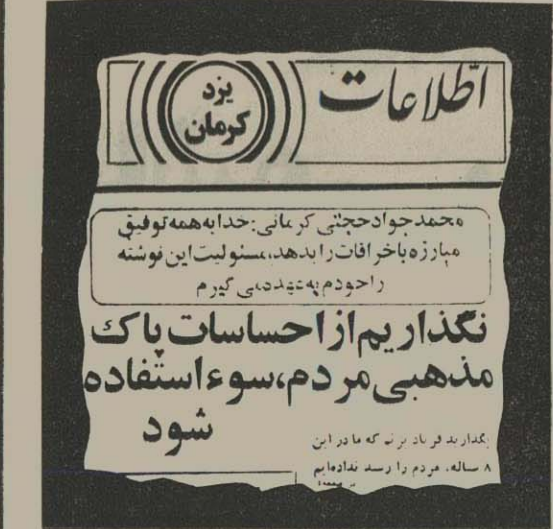 اطلاعات
یزد
کرمان
محمد جواد حجتی کرمانی: خدا به همه توفیق
مبارزه با خرافات را بدهد، مسئولیت این نوشته
را خودم به عهده می گیرم
نگذاریم از احساسات پاک
مذهبی مردم، سوء استفاده
شود
بگذارید فریاد بزنم که ما در این
۸ ساله، مردم را رشد نداده‌ایم